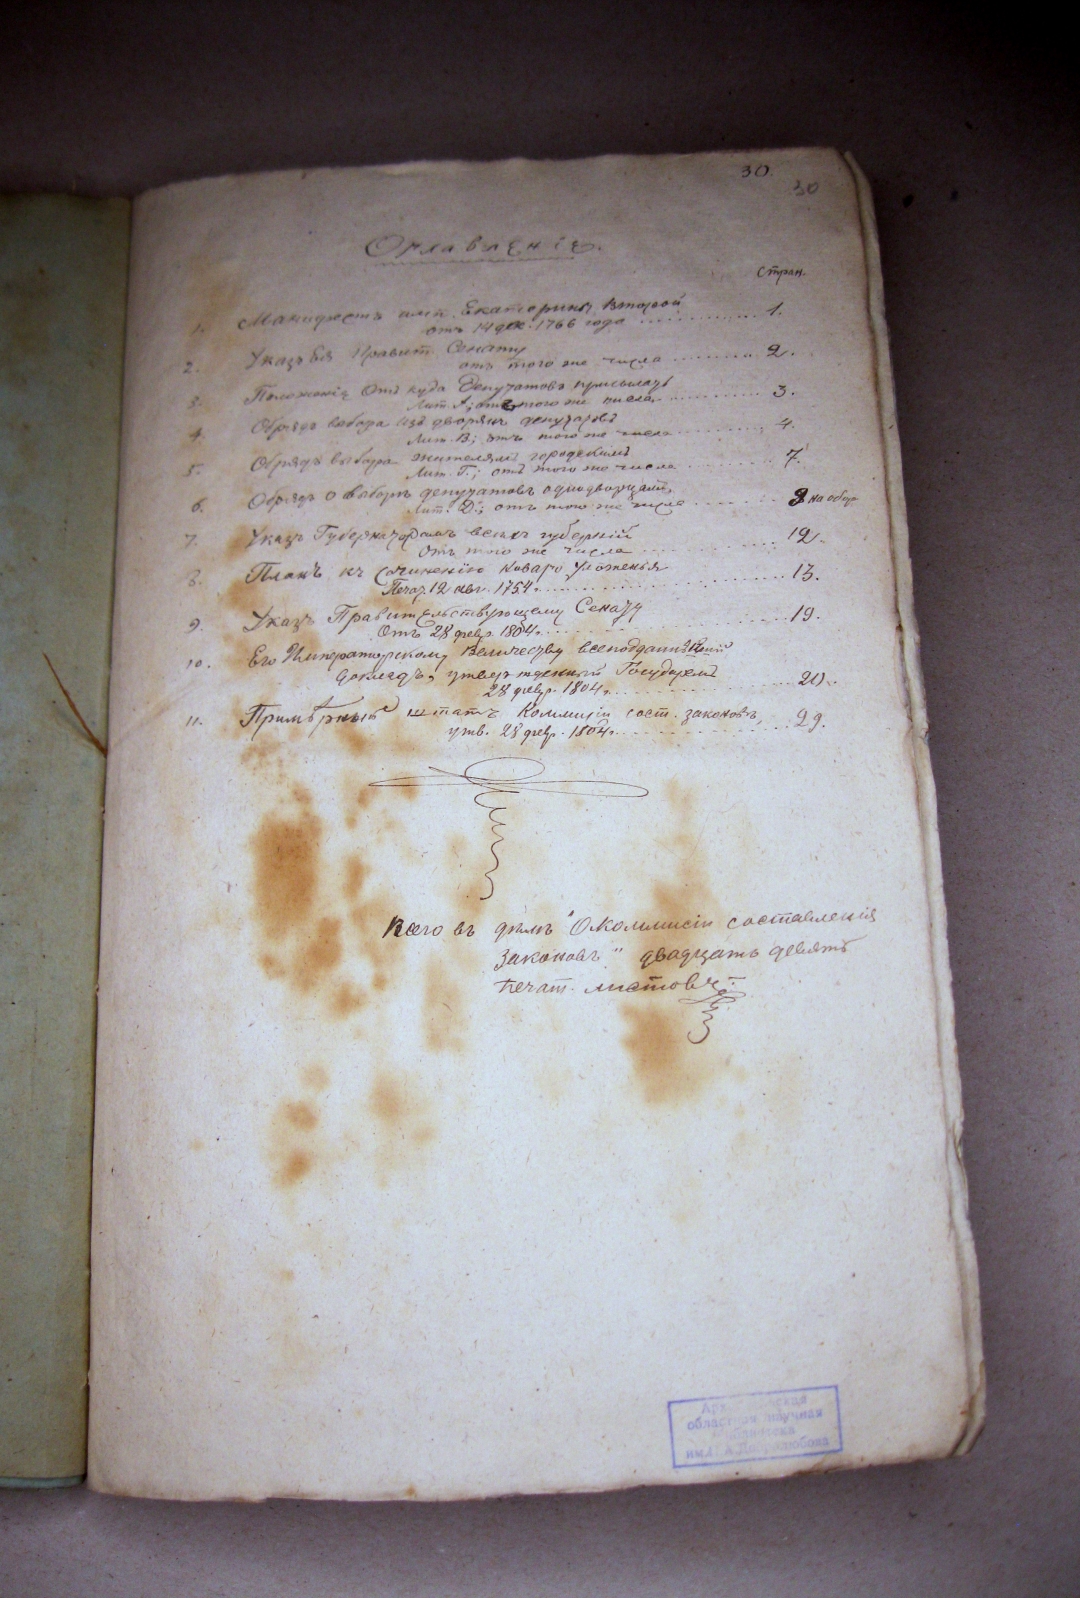 30.
30
Оглавленіе.
Стран.
1. Манифестъ имп. Екатерины Второй
отъ 14 дек. 1766 года ............ 1.
2. Указъ Ея Правит. Сенату
отъ того же числа .......... 2.
3. Положеніе откуда Депутатовъ присылать
Лит. А; отъ того же числа .......... 3.
4. Обрядъ выбора изъ дворянъ депутатовъ
Лит. В; отъ того же числа .......... 4.
5. Обрядъ выбора жителямъ городскимъ
Лит. Г.; отъ того же числа .......... 7.
6. Обрядъ о выборѣ депутатовъ однодворцами,
Лит. Д.; отъ того же числа ....... 8 на обор.
7. Указъ Губернаторамъ всѣхъ губерній
отъ того же числа .............. 12.
8. Планъ къ сочиненію новаго уложенья
Печат. 12 авг. 1754 .............. 13.
9. Указъ Правительствующему Сенату
отъ 28 февр. 1804 г. .............. 19.
10. Его Императорскому Величеству всеподданнѣйшій
докладъ, утвержденный Государемъ
28 февр. 1804 г. .............. 20.
11. Примѣрный штатъ Коммисіи сост. законовъ,
утв. 28 февр. 1804 г. .............. 29.
Всего въ дѣлѣ "О коммисіи составленія
законовъ" двадцать девять
печат. листовъ.
областная научная